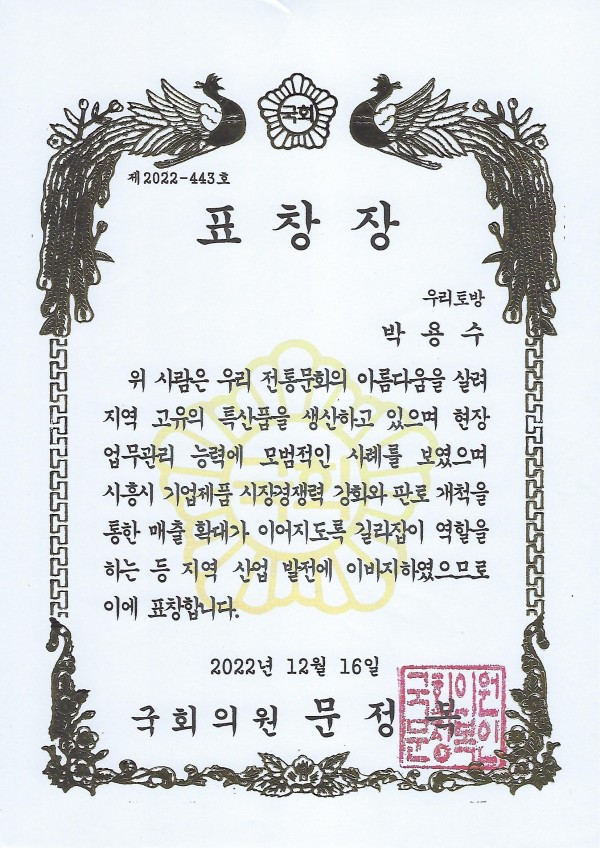 국회
제2022-443호
표창장
우리토방
박용수
위 사람은 우리 전통문화의 아름다움을 살려
지역 고유의 특산품을 생산하고 있으며 현장
업무관리 능력에 모범적인 사례를 보였으며
시흥시 기업제품 시장경쟁력 강화와 판로 개척을
통한 매출 확대가 이어지도록 길라잡이 역할을
하는 등 지역 산업 발전에 이바지하였으므로
이에 표창합니다.
2022년 12월 16일
국회의원 문정복
국회의원
문정복인